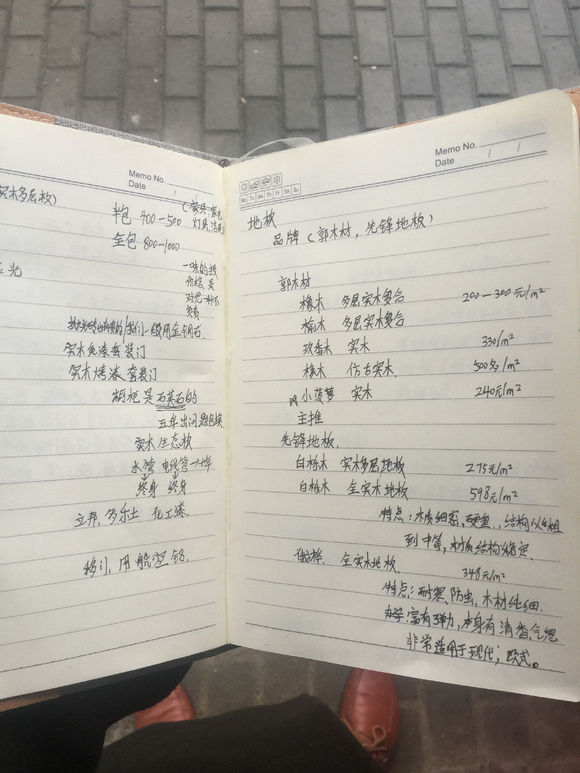 Memo No.
Date / /
实木多层板)
半包 400-500 (家具 家电
灯具 洁具
全包 800-1000
一味的找
价格 是
对您一种不
负责
我们一般用金钢石.
实木免漆套装门
实木烤漆 套装门
橱柜是石英石的
五年出问题包换
实木生态板
水管 电线管一对年
终身 终身
立邦, 多乐士 化工漆
移门, 用 航空铝
Memo No.
Date / /
Mo Tu We Th Fr Sa Su
地板
品牌 (郭木材, 先锋地板)
郭木材
橡木 多层实木复合 200-300元/m²
榆木 多层实木复合
玫香木 实木 330/m²
橡木 仿古实木. 500多/m²
小菠萝 实木 240元/m²
主推
先锋地板.
白栎木 实木多层地板 275元/m²
白栎木 全实木地板 598元/m²
特点: 木质细密, 硬重, 结构从粗
到中等, 材质结构稳定.
全实木地板 348元/m²
特点: 耐寒、防虫, 木材纯细.
富有弹力, 本身有清香气息
非常适用于现代; 欧式。